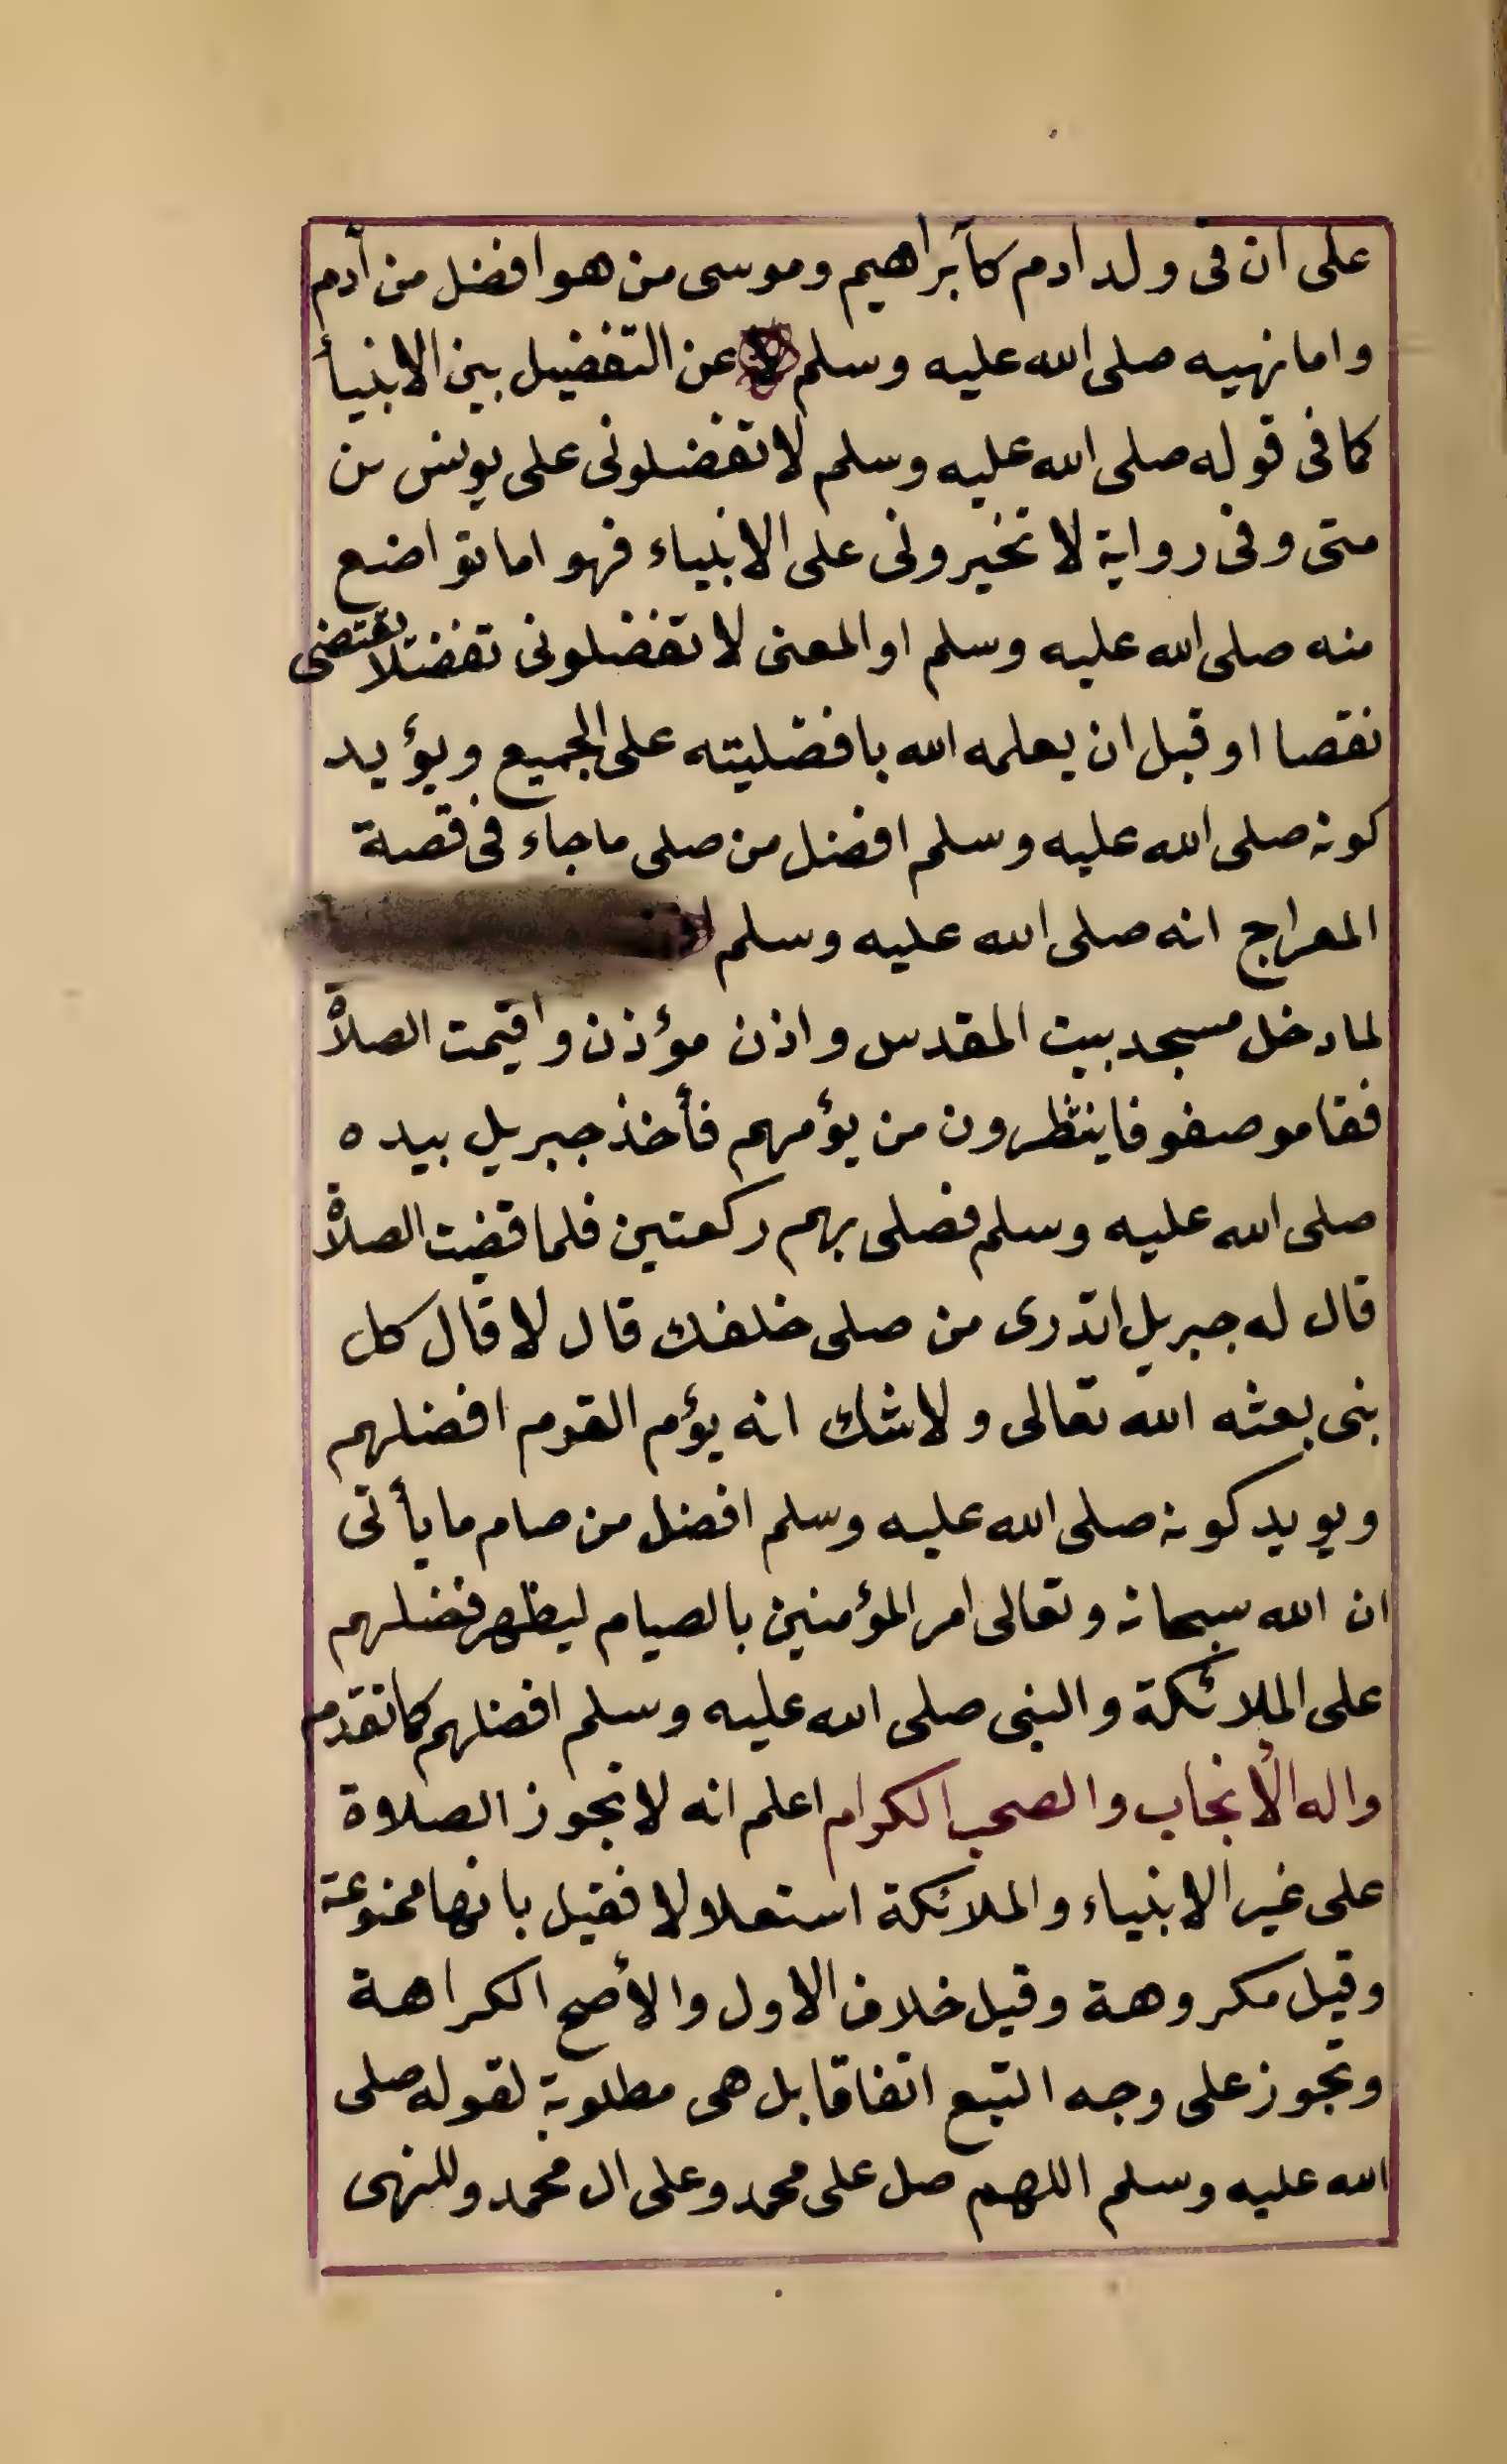 على ان فى ولد ادم كآبراهيم وموسى من هو افضل من أدم
واما نهيه صلى الله عليه وسلم عن التفضيل بين الانبيأ
كما فى قوله صلى الله عليه وسلم لا تفضلونى على يونس بن
متى وفى رواية لا تخيرونى على الانبياء فهو اما تواضع
منه صلى الله عليه وسلم او المعنى لا تفضلونى تفضتلا يقتضى
نقصا او قبل ان يعلمه الله بافضليته على الجميع ويؤيد
كونه صلى الله عليه وسلم افضل من صلى ما جاء فى قصة
المعراج انه صلى الله عليه وسلم
لما دخل مسجد بيت المقدس واذن مؤذن واقيمت الصلاة
فقامو صفوفا ينتظرون من يؤمهم فأخذ جبريل بيده
صلى الله عليه وسلم فصلى بهم ركعتين فلما قضيت الصلاة
قال له جبريل اتدرى من صلى خلفك قال لا قال كل
نبى بعثه الله تعالى ولا شك انه يؤم القوم افضلهم
ويويد كونه صلى الله عليه وسلم افضل من صام ما يأتى
ان الله سبحانه وتعالى امر المؤمنين بالصيام ليظهر فضلهم
على الملائكة والنبى صلى الله عليه وسلم افضلهم كما تقدم
واله الأنجاب والصحب الكرام اعلم انه لا تجوز الصلاوة
على غير الانبياء والملائكة استعلالا فقيل بانها ممنوعة
وقيل مكروهة وقيل خلاف الاول والأصح الكراهة
وتجوز على وجه التبع اتفاقا بل هى مطلوبة لقوله صلى
الله عليه وسلم اللهم صل على محمد وعلى ال محمد وللنهى